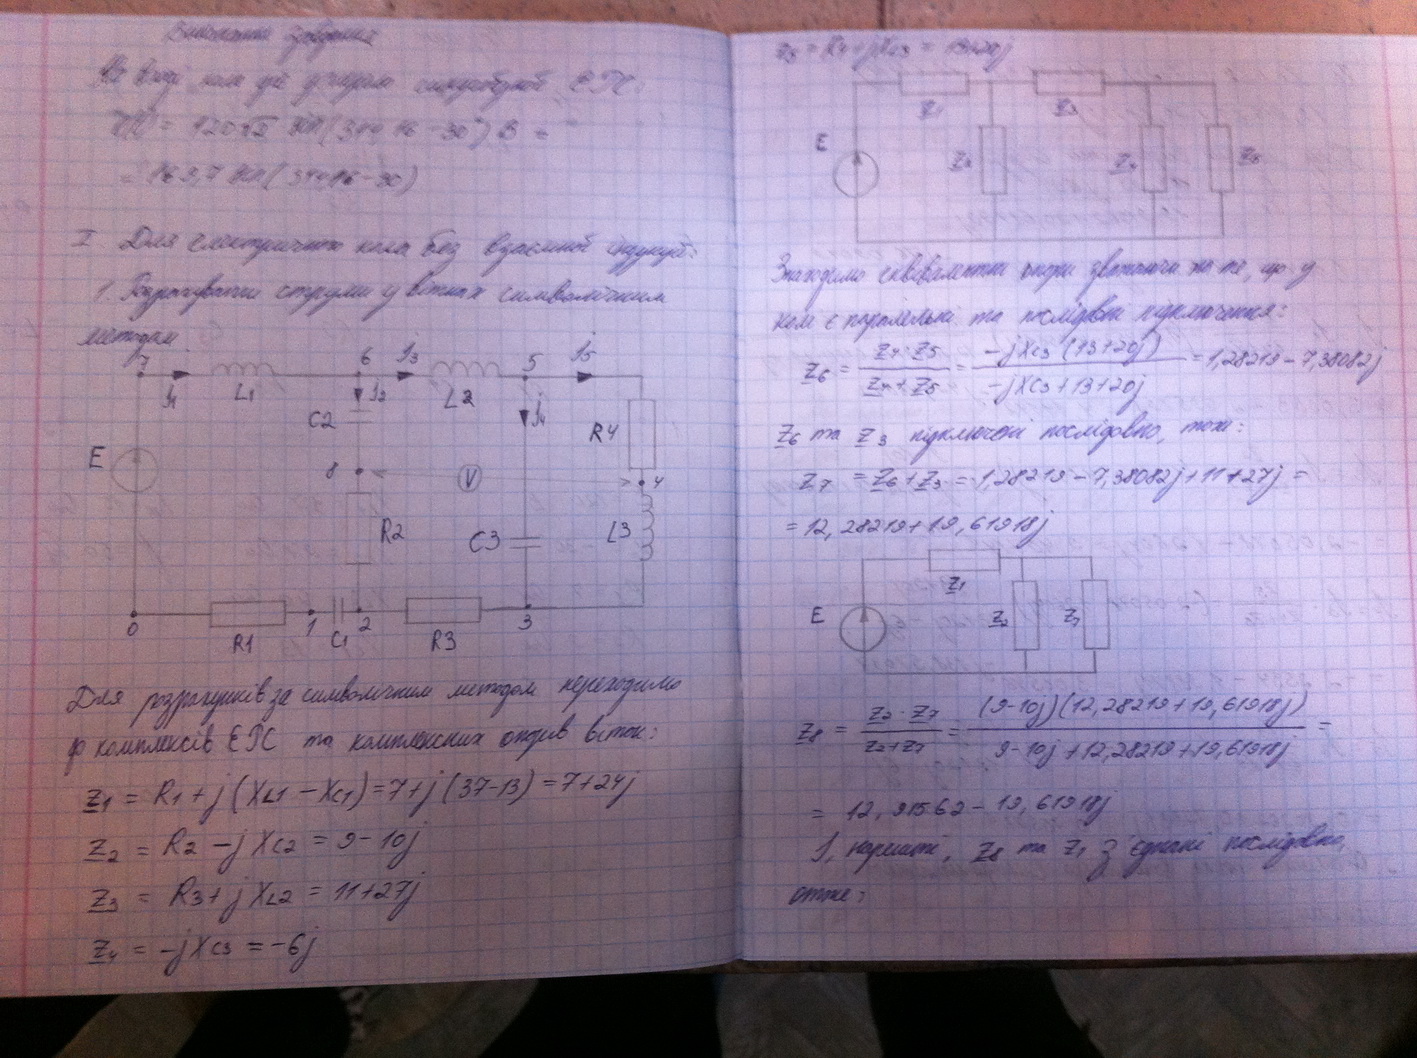 На вході кола діє джерело синусоїдної ЕРС:
= 120√2 sin(314,16 - 30°) В =
= 169,7 sin(314,16 - 30)
I Для електричного кола без взаємної індукції:
1. Розрахувати струми у вітках символічним
методом
7 6 J3 5 J5
J1 L1 J2 L2 J4
C2 R4
E 8 V 4
R2 C3 L3
0 R1 1 C1 2 R3 3
Для розрахунків за символічним методом переходимо
до комплексів ЕРС та комплексних опорів віток:
Z1 = R1 + j(XL1 - XC1) = 7 + j(37-13) = 7+24j
Z2 = R2 - jXC2 = 9-10j
Z3 = R3 + jXL2 = 11+27j
Z4 = -jXC3 = -6j
Z5 = R4 + jXL3 = 13+20j
Z1 Z3
E Z2 Z4 Z5
Знаходимо еквівалентні опори зважаючи на те, що у
колі є паралельні та послідовні підключення:
Z6 = Z4·Z5 / Z4+Z5 = -jXC3 (13+20j) / -jXC3+13+20j = 1,28219 - 7,38082j
Z6 та Z3 підключені послідовно, тож:
Z7 = Z6+Z3 = 1,28219 - 7,38082j + 11+27j =
= 12,28219 + 19,61918j
Z1
E Z2 Z7
Z8 = Z2·Z7 / Z2+Z7 = (9-10j)(12,28219+19,61918j) / 9-10j+12,28219+19,61918j =
= 12,91562 - 19,61918j
І, нарешті, Z8 та Z1 з'єднані послідовно,
отже: